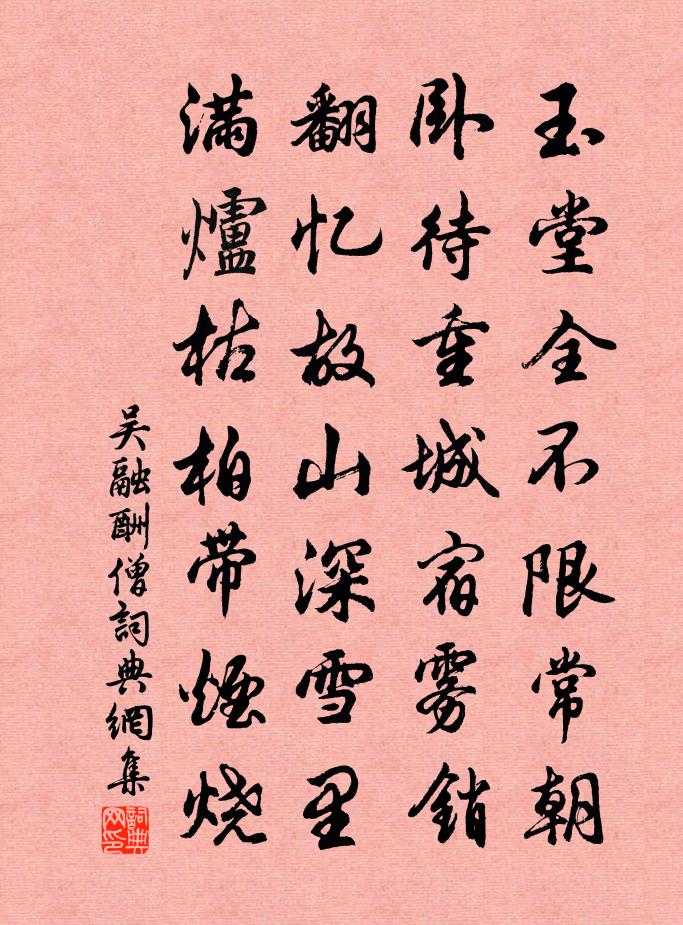 玉堂全不限常朝
卧待重城宿雾銷
翻忆故山深雪里
满爐枯柏带煙烧
吴融酬僧詞典網集
詞典网印